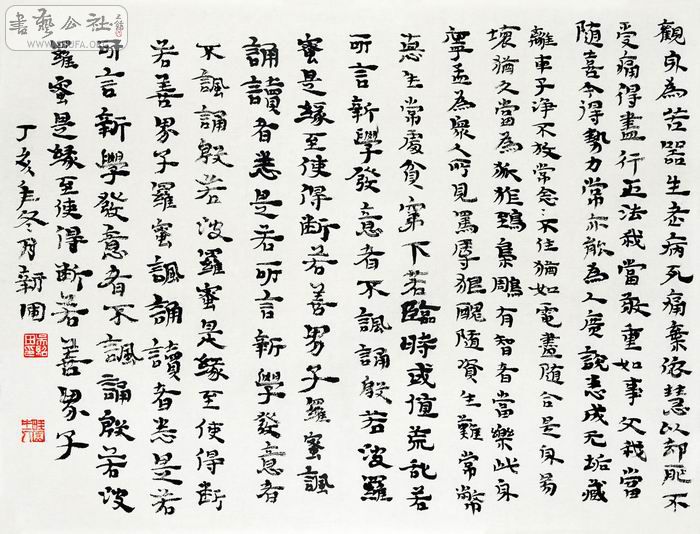 觀身為苦器生老病死痛棄依慧以却死不
受痛得盡行正法我當敬重如事父我當
随喜令得勢力常亦能為人廣說悉成无垢藏
離車子淨不放常念念不住猶如電晝随合是身易
壞猶久當為狐狼鵄梟鵰有智者當樂此身
寧盂為衆人所見罵辱狼醜随資生難常弊
惡生常處貧窮下若臨時或值荒乱若
所言新學發意者不諷誦般若波羅
蜜是緣至使得斷若善男子羅蜜諷
誦讀者悉是若所言新學發意者
不諷誦般若波羅蜜是緣至使得斷
若善男子羅蜜諷誦讀者悉是若
所言新學發意者不諷誦般若波
羅蜜是緣至使得斷若善男子
丁亥年冬月新圃
書藝公社